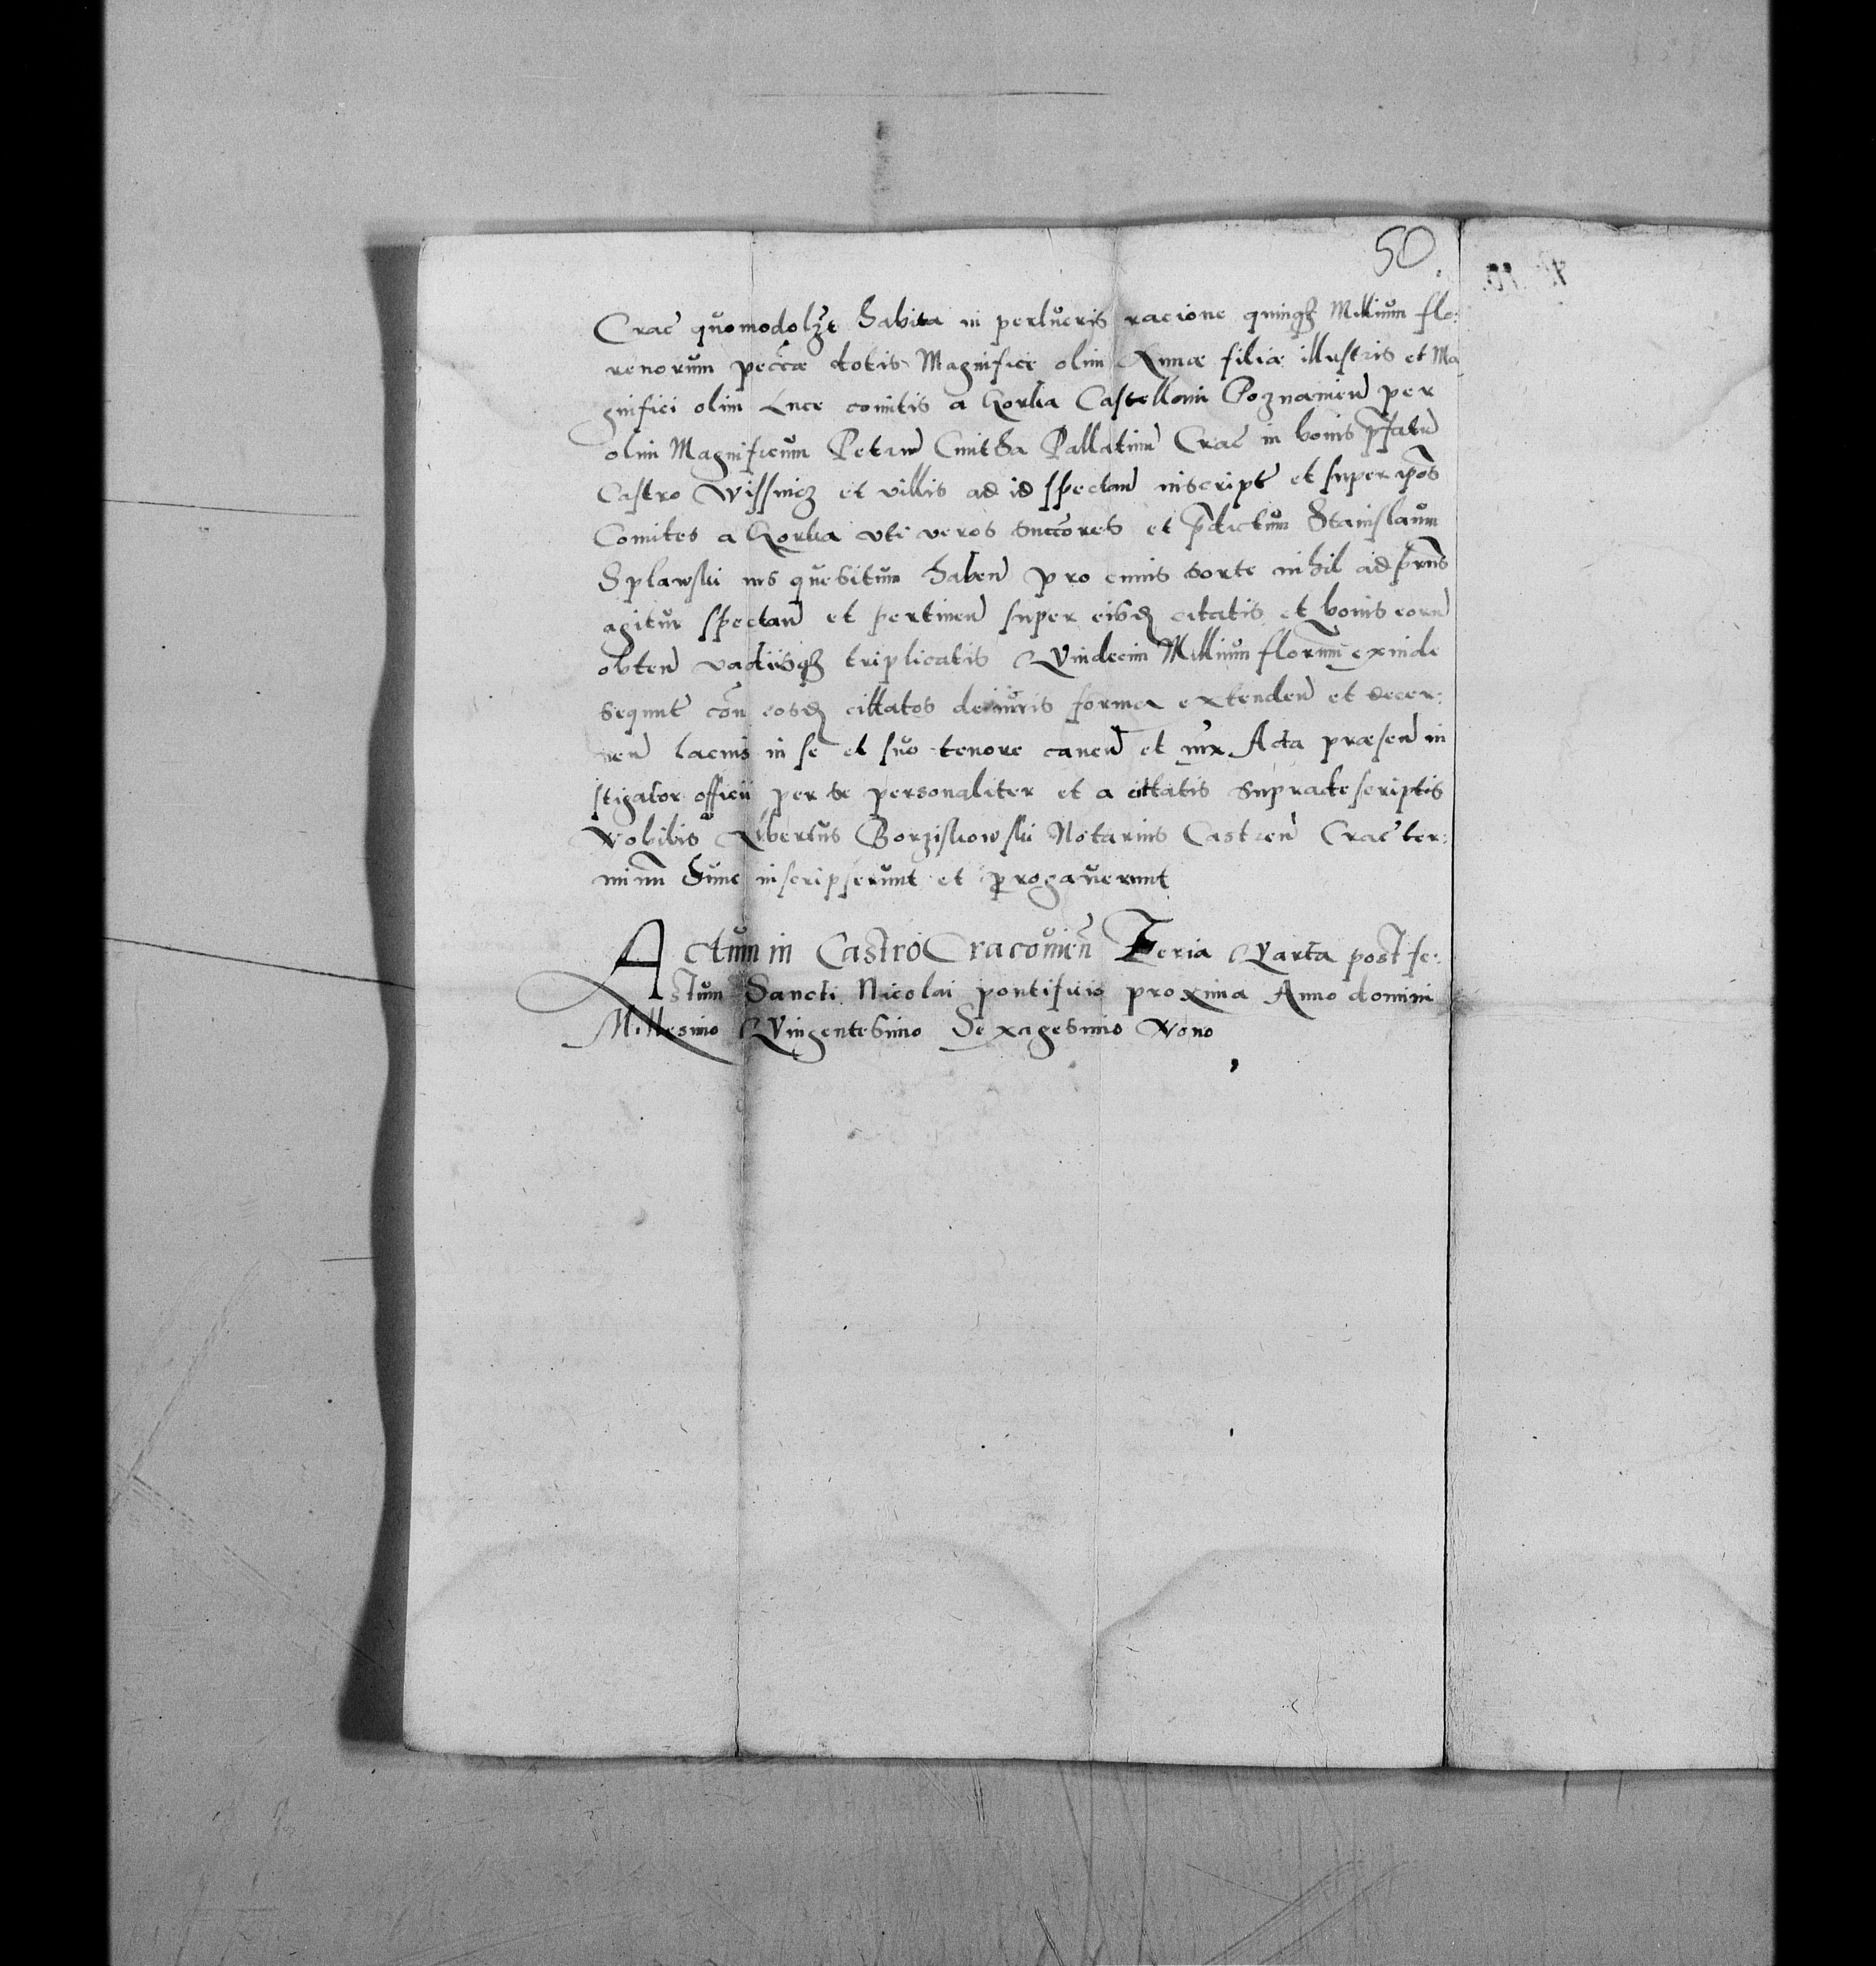 50.
Crac quomodolʒt habita in perlucris racione quinqʒ Millium flo:
renorum peccæ dotis Magnifice olim Annæ filiæ illustris et Ma
gnifici olim Luce comitis a Gorka Castellani Poznanien per
olim Magnificum Petrum Cmitha Pallatinum Crac in bonis pfatu
Castro Wissnicz et villis ad id spectan inscript et super ipos
Comites a Gorka vti veros succores et pdictum Stanislaum
Splawski ius quesitum haben pro cuius sorte nihil ad prns
agitur spectan et pertinen super eisd citatis et bonis eorum
obten vadiisqʒ triplicatis Quindecim Millium florum exinde
sequunt con eosd cittatos de iuris forma extenden et decer:
nen lacius in se et suo tenore canen et iux Acta præsen in
stigator officii per se personaliter et a cittatis supradescriptis
Nobilis Albertus Borziskowski Notarius Castren Crac ter:
minum hunc inscripserunt et progauerunt
Actum in Castro Cracouien Feria Quarta post fe:
stum Sancti Nicolai pontificis proxima Anno domini
Millesimo Quingentesimo Sexagesimo Nono